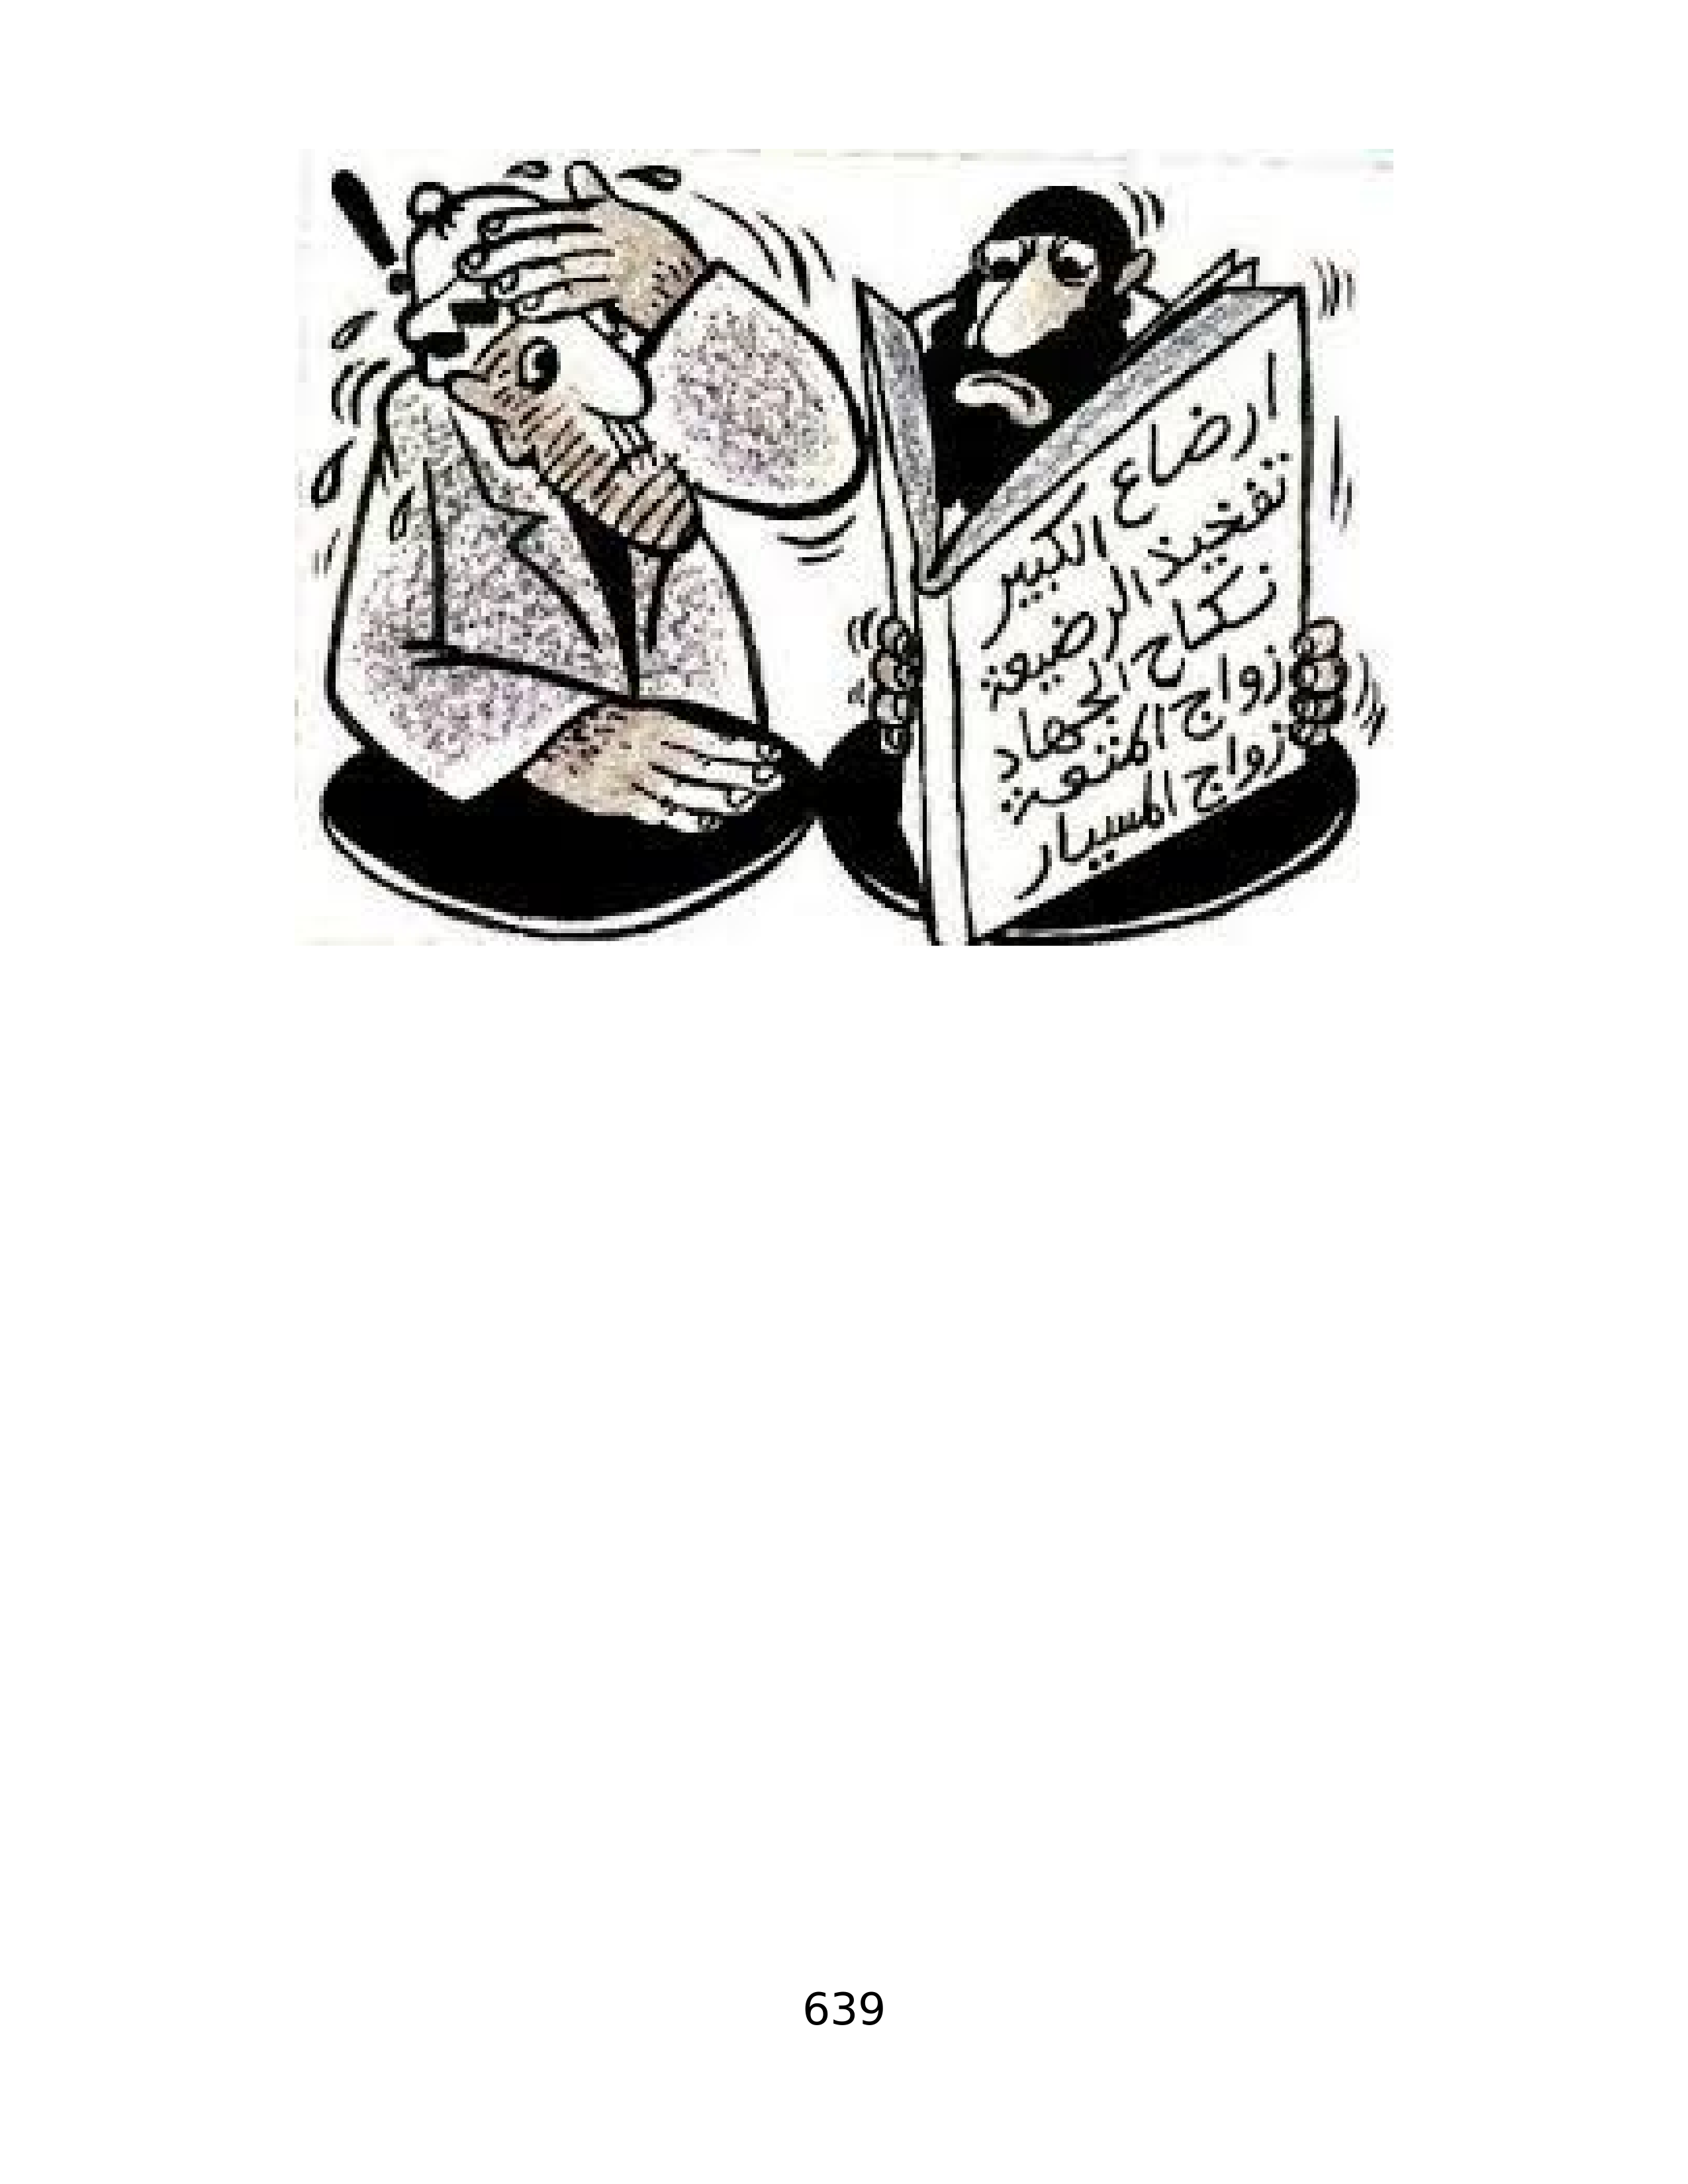 ارضاع الكبير
تفخيذ الرضيعة
نكاح الجهاد
زواج المتعة
زواج المسيار
639